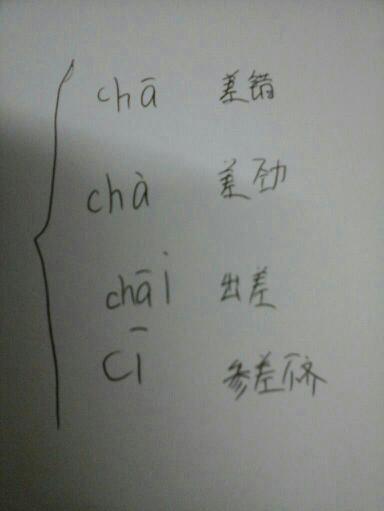 chā 差错
chà 差劲
chāi 出差
cī 参差不齐